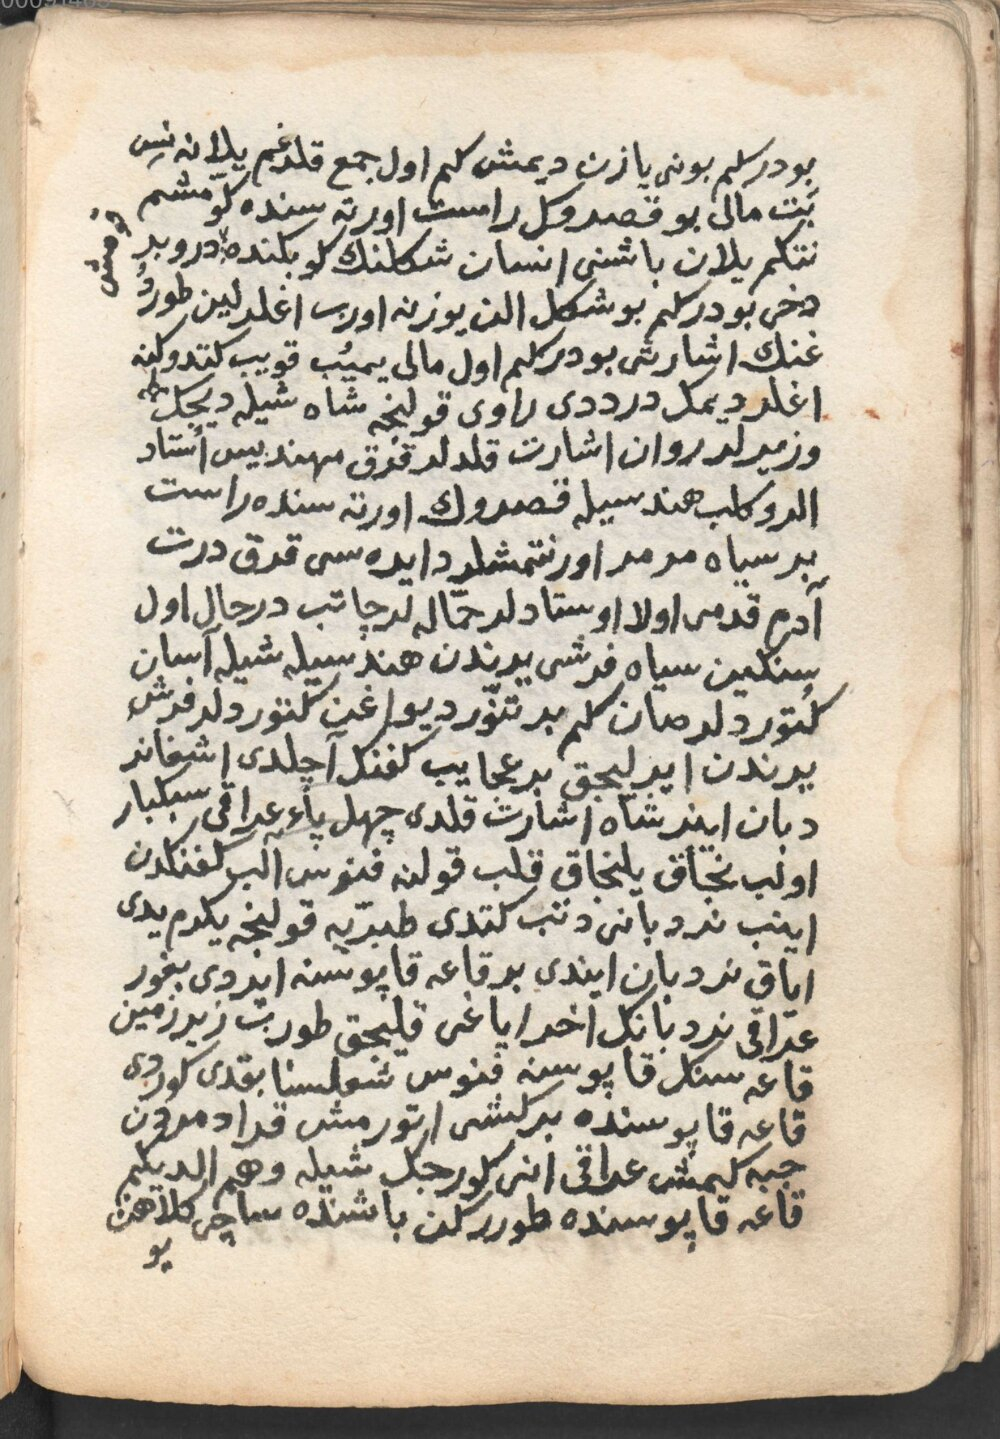 بودركلم بونى يازن ديمش كلم اول جمع قلدغم يلانه نيس
بَيت مالى بو قصروكل راست اورته سنده كوّمشم
نتكلم يلان باشنى انسان شكلنك كوبكنده در وبر
دخى بودركلم بو شكل الن يوزنه اورب اغلر لين طورد
غنك اشارتى بودركلم اول مالى يميُب قويب كتدوكنه
اغلر ديمك درددى راوى قولنجه شاه شيله ديجك
وزيرلر روان اشارت قلدلر قرق مهنديس اُستاد
الروكلب هندسيله قصروك اورته سنده راست
بر سياه مرمر اورنتمشلر دايره سى قرق درت
آدم قدمى اولا اوستادلر حمّاله لر چاتب درحال اول
سنكين سياه فرشى يرندن هندسيله شيله آسان
كُتورد لر صان كلم بر تنّور ديواغن كلتورد لر فرش
يرندن ايرليجق بر عجايب كفنكل آچلدى اشغانر
دبان اينر شاه اشارت قلدى چهل پاءِ عراقى سبكبار
اولب بخچاق يلنجاق قلب قولنه فنوس الب كفنكلدن
اينب نردبانى دتب كتدى طبريه قولنجه يكرم يدى
اياق نردبان ايندى بر قاعه قاپوسنه ايردى بغور
عراقى نردبانك اخر اياغى قليجق طورب زيرزمين
قاعه سنكل قاپوسنه فنوس شعلسنا بقدى كوردى
قاعه قاپوسنده بر كشى اتورمش قراد مردن
جبه كيمش عراقى انى كورجك شيله وهم الديكلم
قاعه قاپوسنده طوركن باشنده ساچى كلاهن
يو